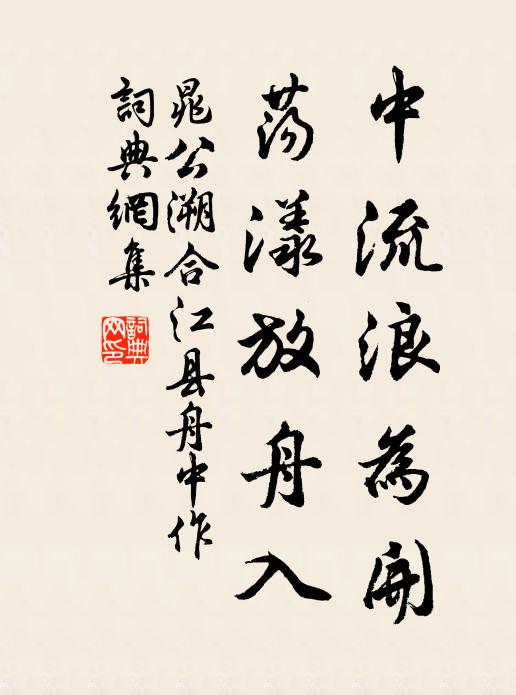 中流浪為開
蕩漾放舟入
晁公溯合江县舟中作
詞典網集
詞典網印